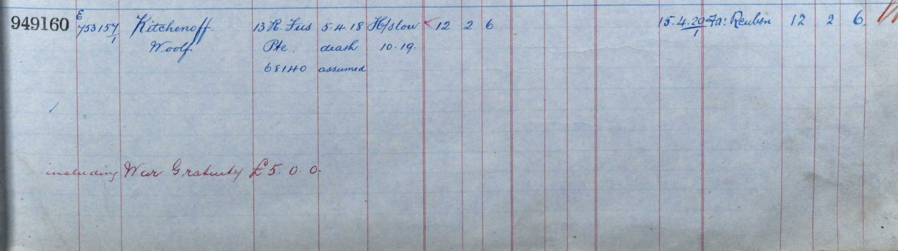 949160 E 753157/1 Kitchenoff 13 R. Fus 5.4.18 Hslow 12 2 6 15.4.20 Fa: Reuben 12 2 6
Woolf. Pte. death 10.19.
68140 assumed
including War Gratuity £5. 0. 0.